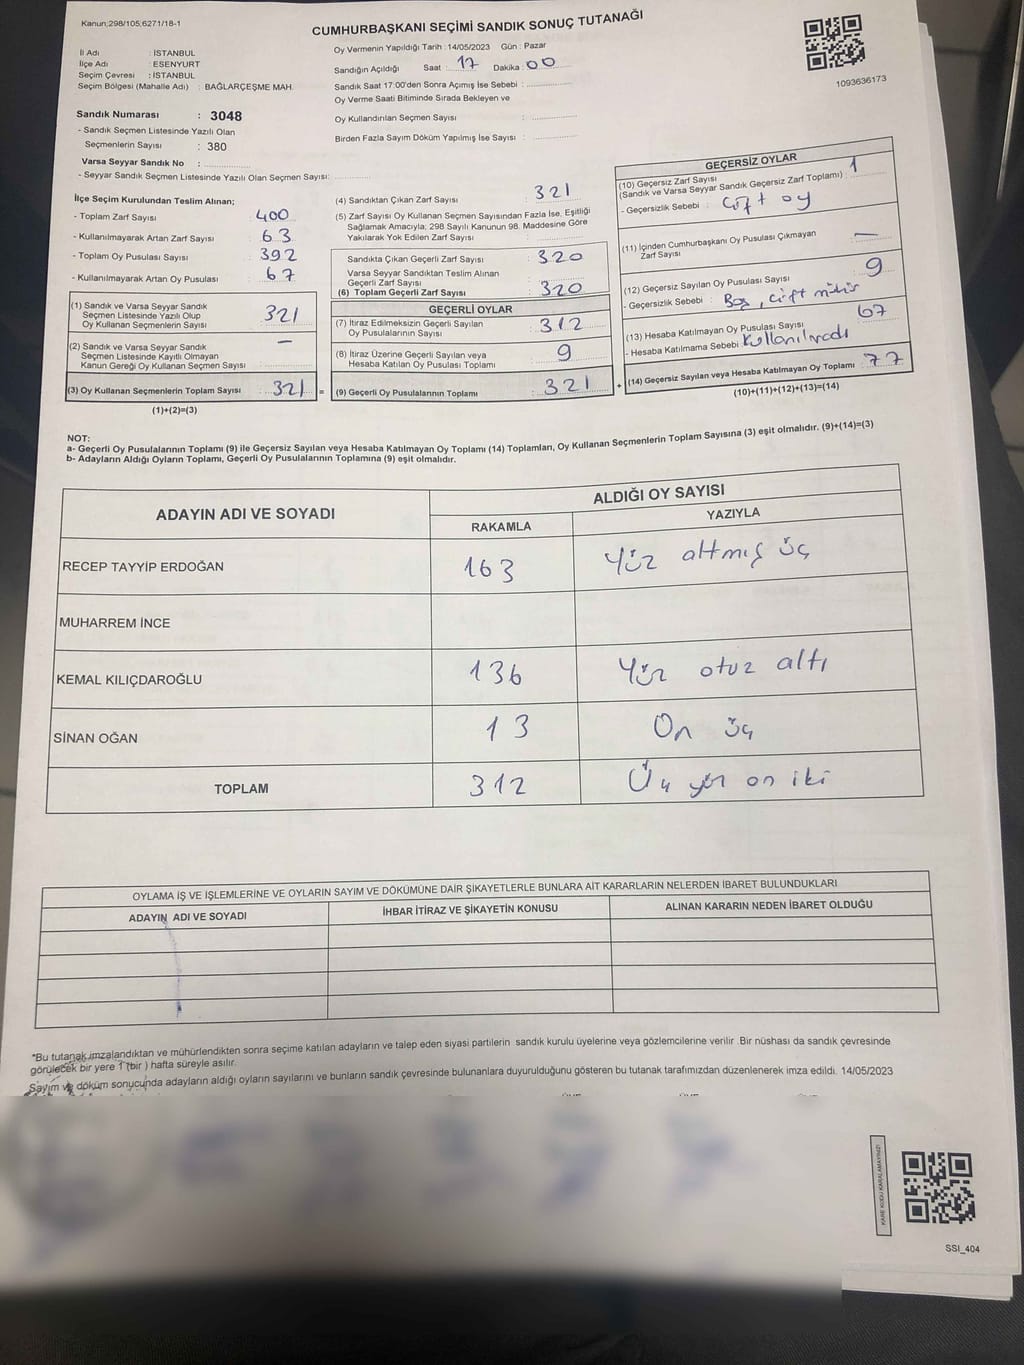 Kanun;298/105;6271/18-1
CUMHURBAŞKANI SEÇİMİ SANDIK SONUÇ TUTANAĞI
1093636173
İl Adı : İSTANBUL
İlçe Adı : ESENYURT
Seçim Çevresi : İSTANBUL
Seçim Bölgesi (Mahalle Adı) : BAĞLARÇEŞME MAH.
Oy Vermenin Yapıldığı Tarih : 14/05/2023 Gün : Pazar
Sandığın Açıldığı Saat : 17 Dakika : 00
Sandık Saat 17:00'den Sonra Açımış İse Sebebi :
Oy Verme Saati Bitiminde Sırada Bekleyen ve
Oy Kullandırılan Seçmen Sayısı :
Birden Fazla Sayım Döküm Yapılmış İse Sayısı :
Sandık Numarası : 3048
- Sandık Seçmen Listesinde Yazılı Olan
Seçmenlerin Sayısı : 380
Varsa Seyyar Sandık No :
- Seyyar Sandık Seçmen Listesinde Yazılı Olan Seçmen Sayısı:
İlçe Seçim Kurulundan Teslim Alınan;
- Toplam Zarf Sayısı 400
- Kullanılmayarak Artan Zarf Sayısı 63
- Toplam Oy Pusulası Sayısı 392
- Kullanılmayarak Artan Oy Pusulası 67
(1) Sandık ve Varsa Seyyar Sandık
Seçmen Listesinde Yazılı Olup
Oy Kullanan Seçmenlerin Sayısı 321
(2) Sandık ve Varsa Seyyar Sandık
Seçmen Listesinde Kayıtlı Olmayan
Kanun Gereği Oy Kullanan Seçmen Sayısı –
(3) Oy Kullanan Seçmenlerin Toplam Sayısı 321 =
(1)+(2)=(3)
(4) Sandıktan Çıkan Zarf Sayısı 321
(5) Zarf Sayısı Oy Kullanan Seçmen Sayısından Fazla İse, Eşitliği
Sağlamak Amacıyla; 298 Sayılı Kanunun 98. Maddesine Göre
Yakılarak Yok Edilen Zarf Sayısı :
Sandıkta Çıkan Geçerli Zarf Sayısı : 320
Varsa Seyyar Sandıktan Teslim Alınan
Geçerli Zarf Sayısı :
(6) Toplam Geçerli Zarf Sayısı : 320
GEÇERLİ OYLAR
(7) İtiraz Edilmeksizin Geçerli Sayılan
Oy Pusulalarının Sayısı : 312
(8) İtiraz Üzerine Geçerli Sayılan veya
Hesaba Katılan Oy Pusulası Toplamı : 9
(9) Geçerli Oy Pusulalarının Toplamı : 321 +
GEÇERSİZ OYLAR
(10) Geçersiz Zarf Sayısı 1
(Sandık ve Varsa Seyyar Sandık Geçersiz Zarf Toplamı) :
- Geçersizlik Sebebi : Çift oy
(11) İçinden Cumhurbaşkanı Oy Pusulası Çıkmayan
Zarf Sayısı : –
(12) Geçersiz Sayılan Oy Pusulası Sayısı : 9
- Geçersizlik Sebebi : Boş, çift mühür
(13) Hesaba Katılmayan Oy Pusulası Sayısı : 67
- Hesaba Katılmama Sebebi : Kullanılmadı
(14) Geçersiz Sayılan veya Hesaba Katılmayan Oy Toplamı : 77
(10)+(11)+(12)+(13)=(14)
NOT:
a- Geçerli Oy Pusulalarının Toplamı (9) ile Geçersiz Sayılan veya Hesaba Katılmayan Oy Toplamı (14) Toplamları, Oy Kullanan Seçmenlerin Toplam Sayısına (3) eşit olmalıdır. (9)+(14)=(3)
b- Adayların Aldığı Oyların Toplamı, Geçerli Oy Pusulalarının Toplamına (9) eşit olmalıdır.
ADAYIN ADI VE SOYADI
ALDIĞI OY SAYISI
RAKAMLA YAZIYLA
RECEP TAYYİP ERDOĞAN 163 Yüz altmış üç
MUHARREM İNCE
KEMAL KILIÇDAROĞLU 136 Yüz otuz altı
SİNAN OĞAN 13 On üç
TOPLAM 312 Üç yüz on iki
OYLAMA İŞ VE İŞLEMLERİNE VE OYLARIN SAYIM VE DÖKÜMÜNE DAİR ŞİKAYETLERLE BUNLARA AİT KARARLARIN NELERDEN İBARET BULUNDUKLARI
ADAYIN ADI VE SOYADI İHBAR İTİRAZ VE ŞİKAYETİN KONUSU ALINAN KARARIN NEDEN İBARET OLDUĞU
*Bu tutanak imzalandıktan ve mühürlendikten sonra seçime katılan adayların ve talep eden siyasi partilerin sandık kurulu üyelerine veya gözlemcilerine verilir. Bir nüshası da sandık çevresinde
görülecek bir yere 1 (bir ) hafta süreyle asılır.
Sayım ve döküm sonucunda adayların aldığı oyların sayılarını ve bunların sandık çevresinde bulunanlara duyurulduğunu gösteren bu tutanak tarafımızdan düzenlenerek imza edildi. 14/05/2023
KARE KODU KARALAMAYINIZ!
SSI_404